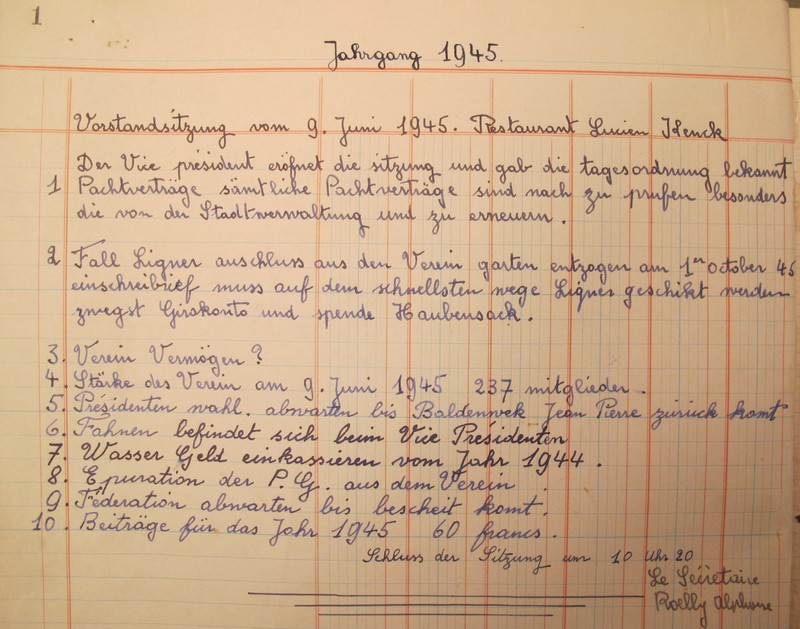 1
Jahrgang 1945.
Vorstandsitzung vom 9. Juni 1945. Restaurant Lucien Kenck
Der Vice président eröfnet die sitzung und gab die tagesordnung bekannt
1 Pachtverträge sämtliche Pachtverträge sind nach zu prufen besonders
die von der Stadtverwaltung und zu erneuern.
2 Fall Ligner auschluss aus den Verein garten entzogen am 1er October 45
einschreibrief muss auf dem schnellsten wege Ligner geschikt werden
zwegst Girokonto und spende Haubensack.
3. Verein Vermögen?
4. Stärke des Verein am 9. Juni 1945 237 mitglieder.
5. Présidenten wahl. abwarten bis Baldenwek Jean Pierre zürück komt
6. Fahnen befindet sich beim Vice Présidenten
7. Wasser Geld einkassieren vom Jahr 1944.
8. Epuration der P.G. aus dem Verein.
9. Féderation abwarten bis bescheit komt.
10. Beiträge für das Jahr 1945 60 francs.
Schluss der Sitzung um 10 Uhr 20
Le Sécretaire
Roelly Alphonse